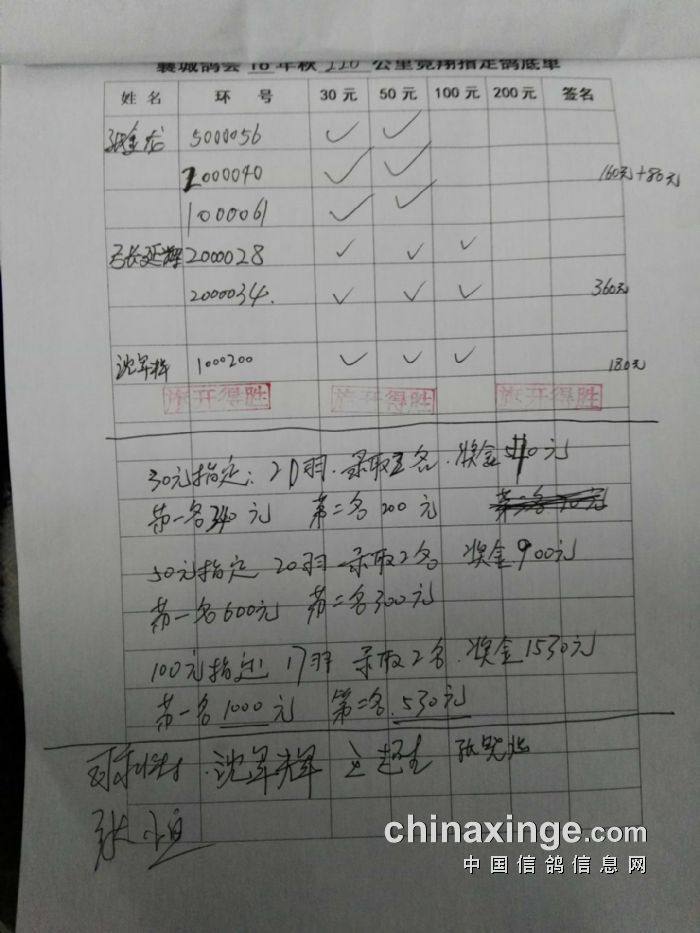 襄城鸽会 16 年秋 220 公里竞翔指定鸽底单
姓 名 环 号 30 元 50 元 100 元 200 元 签名
5000056 ✓ ✓
2000040 ✓ ✓ 160元+80元
1000061 ✓ ✓
2000028 ✓ ✓ ✓
2000034. ✓ ✓ ✓ 360元
沈军辉 1000200 ✓ ✓ ✓ 180元
旗开得胜 旗开得胜 旗开得胜
30元指定: 20羽. 录取 名. 奖金540元
第一名340元 第二名200元
50元指定 20羽 录取2名 奖金900元
第一名600元 第二名300元
100元指定 17羽 录取2名. 奖金1530元
第一名1000元 第二名.530元
沈军辉
chinaxinge.com
中国信鸽信息网